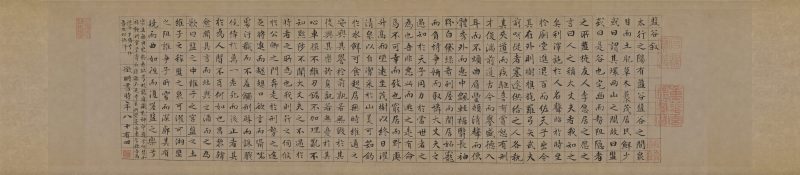 盤谷敘
太行之陽有盤谷盤谷之間泉
甘而土肥草木叢茂居民鮮少
或曰謂其環兩山之間故曰盤
或曰是谷也宅幽而勢阻隱者
之所盤旋友人李愿居之愿之
言曰人之稱大丈夫者我知之
矣利澤施於人名聲昭於時坐
於廟堂進退百官佐天子出令
其在外則樹旗旄羅弓矢武夫
前呵從者塞途供給之人各執
其物夾道而疾馳喜有賞怒有刑
才俊滿前道古今而譽盛德入
耳而不煩曲眉豐頰清聲而便
體秀外而惠中飄輕裾翳長袖
粉白黛綠者列屋而閒居妒寵
而負恃爭妍而取憐大丈夫之
遇知於天子用力於當世者之
所為也吾非惡此而逃之是有命
焉不可幸而致也窮居而野處
升高而望遠坐茂樹以終日濯
清泉以自潔採於山美可茹釣
於水鮮可食起居無時維適之
安與其譽於前孰若無毀於其
後與其樂於身孰若無憂於其
心車服不維刀鋸不加理亂不
知黜陟不聞大丈夫之不遇於
時者之所為也我則行之伺候
於公卿之門奔走於形勢之途
足將進而趑趄口欲言而囁嚅
處汙穢而不羞觸刑辟而誅戮
僥倖於萬一老死而後止者其
於為人賢不肖何如也昌黎韓
愈聞其言而壯與之酒而為之
歌曰盤之中維子之宮盤之土
維子之稼盤之泉可濯可沿盤
之阻誰爭子所窈而深廓其有
容繚而曲如往而復嗟盤之樂兮
徵明書時年八十有四